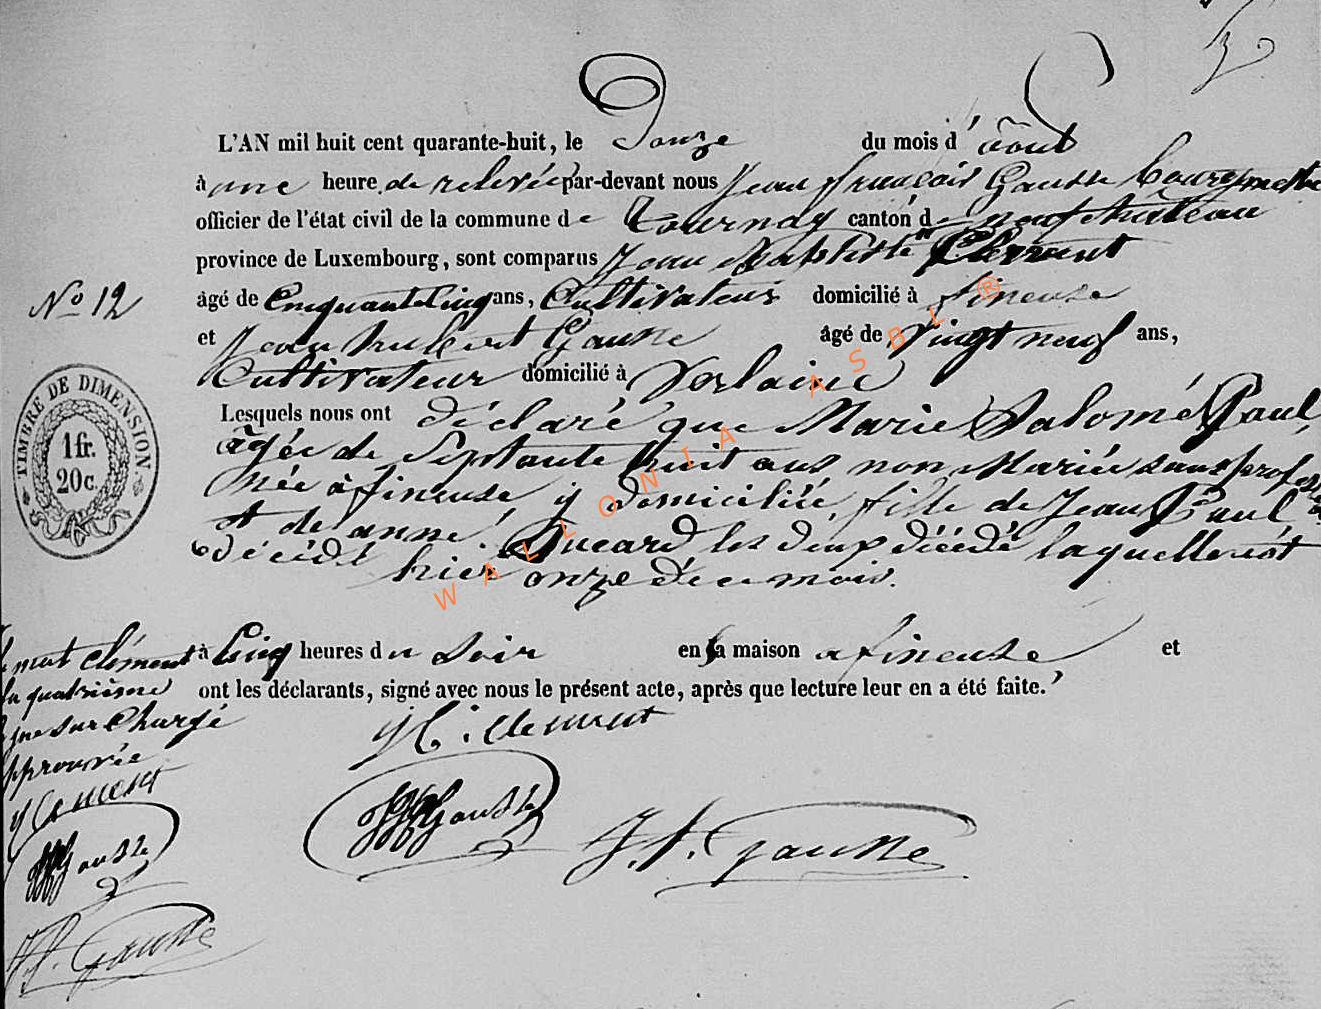 L'AN mil huit cent quarante-huit, le Douze du mois d'août
à une heure de relevée par-devant nous Jean françois Gausse bourgmestre
officier de l'état civil de la commune de Tournay canton de neufchateau
province de Luxembourg, sont comparus Jean Baptiste Clement
âgé de Cinquante Cinq ans, Cultivateur domicilié à fineuse
No 12
et Jean hubert Gausse âgé de Vingt neuf ans,
Cultivateur domicilié à Verlaine
Lesquels nous ont déclaré que Marie Salomé Paul,
âgée de Septante huit ans non Mariée sans profession
née à fineuse, y domiciliée, fille de Jean Paul
et de anne Ducard les deux décédé laquelle est
décédé hier onze de ce mois.
TIMBRE DE DIMENSION.
1 fr.
20 c.
à Cinq heures du Soir en sa maison a fineuse et
ont les déclarants, signé avec nous le présent acte, après que lecture leur en a été faite.
mot clément à
la quatrième
ligne sur Chargé
approuvée
J Clement
Gausse
J.f. Gausse
J Clement
Gausse
J.f. Gausse
WALLONIA ASBL ®